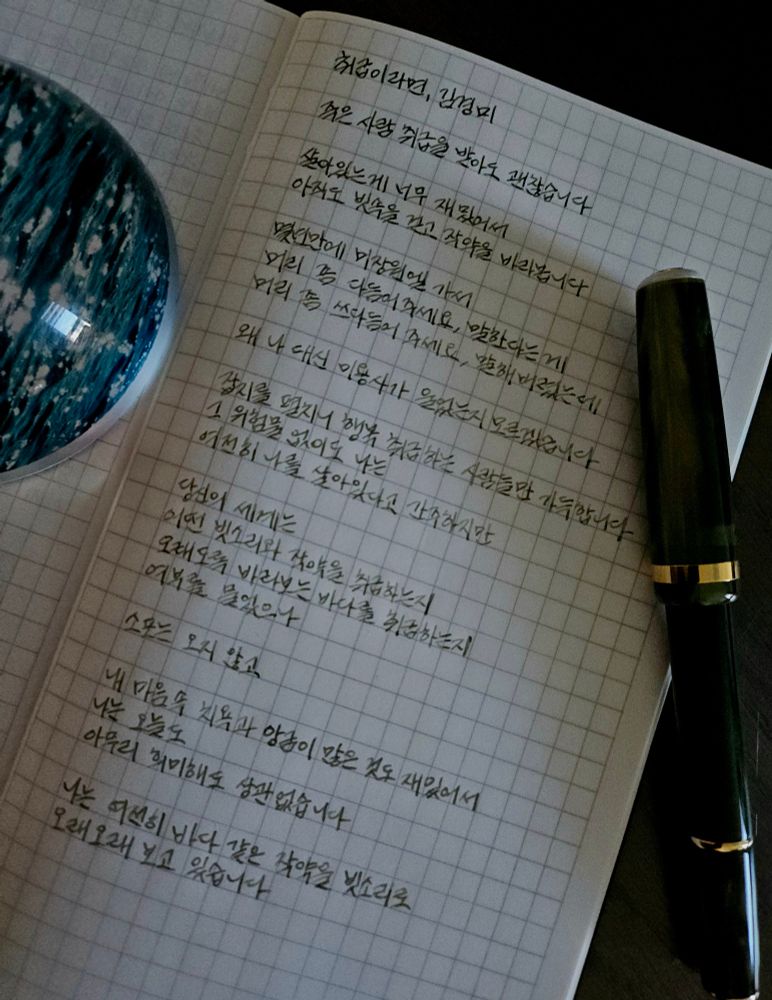 취급이라면, 김경미
죽은 사람 취급을 받아도 괜찮습니다
살아있는게 너무 재밌어서
아직도 빗속을 걷고 작약을 바라봅니다
몇년만에 미장원엘 가서
머리 좀 다듬어 주세요, 말한다는 게
머리 좀 쓰다듬어 주세요, 말해버렸는데
왜 나 대신 미용사가 울었는지 모르겠습니다
잡지를 펼치니 행복 취급하는 사람들만 가득합니다
그 위험물 없이도 나는
여전히 나를 살아있다고 간주하지만
당신의 세계는
어떤 빗소리와 작약을 취급하는지
오래도록 바라보는 바다를 취급하는지
여부를 물었으나
소포는 오지 않고
내 마음 속 치욕과 앙금이 많은 것도 재밌어서
나는 오늘도
아무리 희미해도 상관없습니다
나는 여전히 바다 같은 작약을 빗소리로
오래오래 보고 있습니다